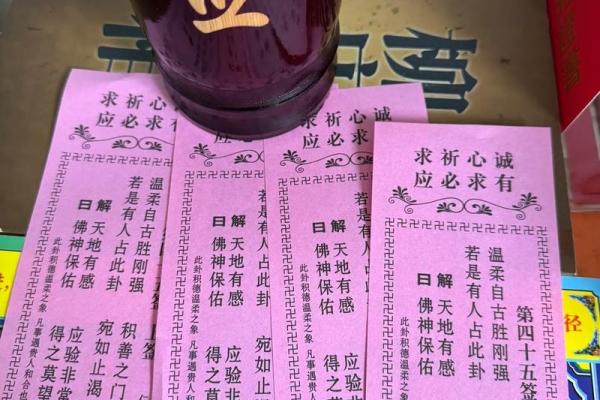 应
柳
心祈求
求必应
温柔自古胜刚强 积善之门
若是有人占此卦 宛如止渴
解 天地有感 应验非常
曰 佛神保佑 得之莫望
此卦积德温柔之象 凡事遇贵人和合也
若是有人占此卦 宛如止
解 天地有感 应验非
曰 佛神保佑 得之莫
此卦积德温柔之象 凡事遇贵人
诚心祈求
有求必应
若是有人占
解 天地有感 应验非
曰 佛神保佑 得之莫
此卦积德温柔之象 凡事遇贵人
诚心祈求
有求必应
第四十五签
温柔自古胜刚强
若是有人占此卦
解 天地有感
曰 佛神保佑
此卦积德温柔之象
径